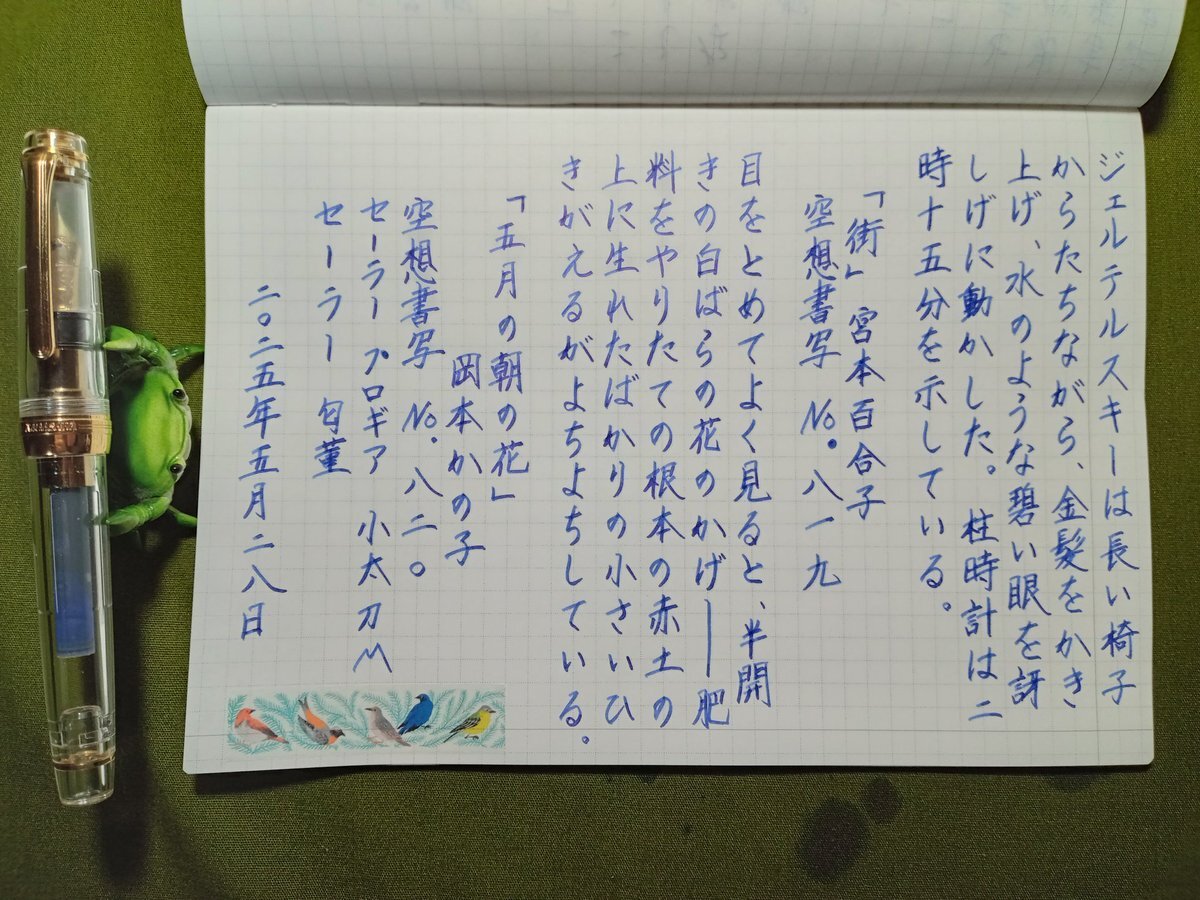 ジェルテルスキーは長い椅子
からたちながら、金髪をかき
上げ、水のような碧い眼を訝
しげに動かした。柱時計は二
時十五分を示している。
「街」 宮本百合子
空想書写 No.八一九
目をとめてよく見ると、半開
きの白ばらの花のかげ――肥
料をやりたての根本の赤土の
上に生れたばかりの小さいひ
きがえるがよちよちしている。
「五月の朝の花」
岡本かの子
空想書写 No.八二〇
セーラー プロギア 小太刀M
セーラー 匂菫
二〇二五年五月二八日